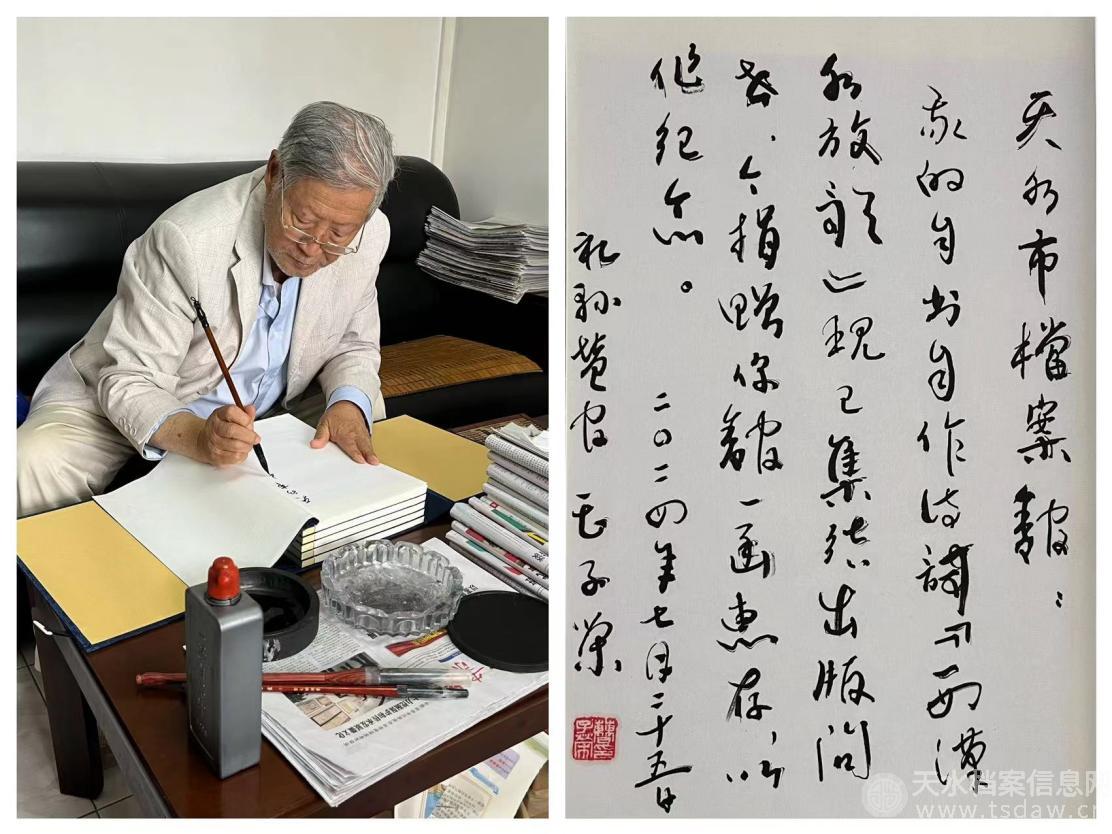 天水市檔案館：
我的自书自作诗词『西漢
水放歌』现已集结出版问
世，今捐赠你館一函惠存，以
作纪念。
二〇二四年七月二十五日
礼县盐官 子荣
天水档案信息网
www.tsdaw.cn